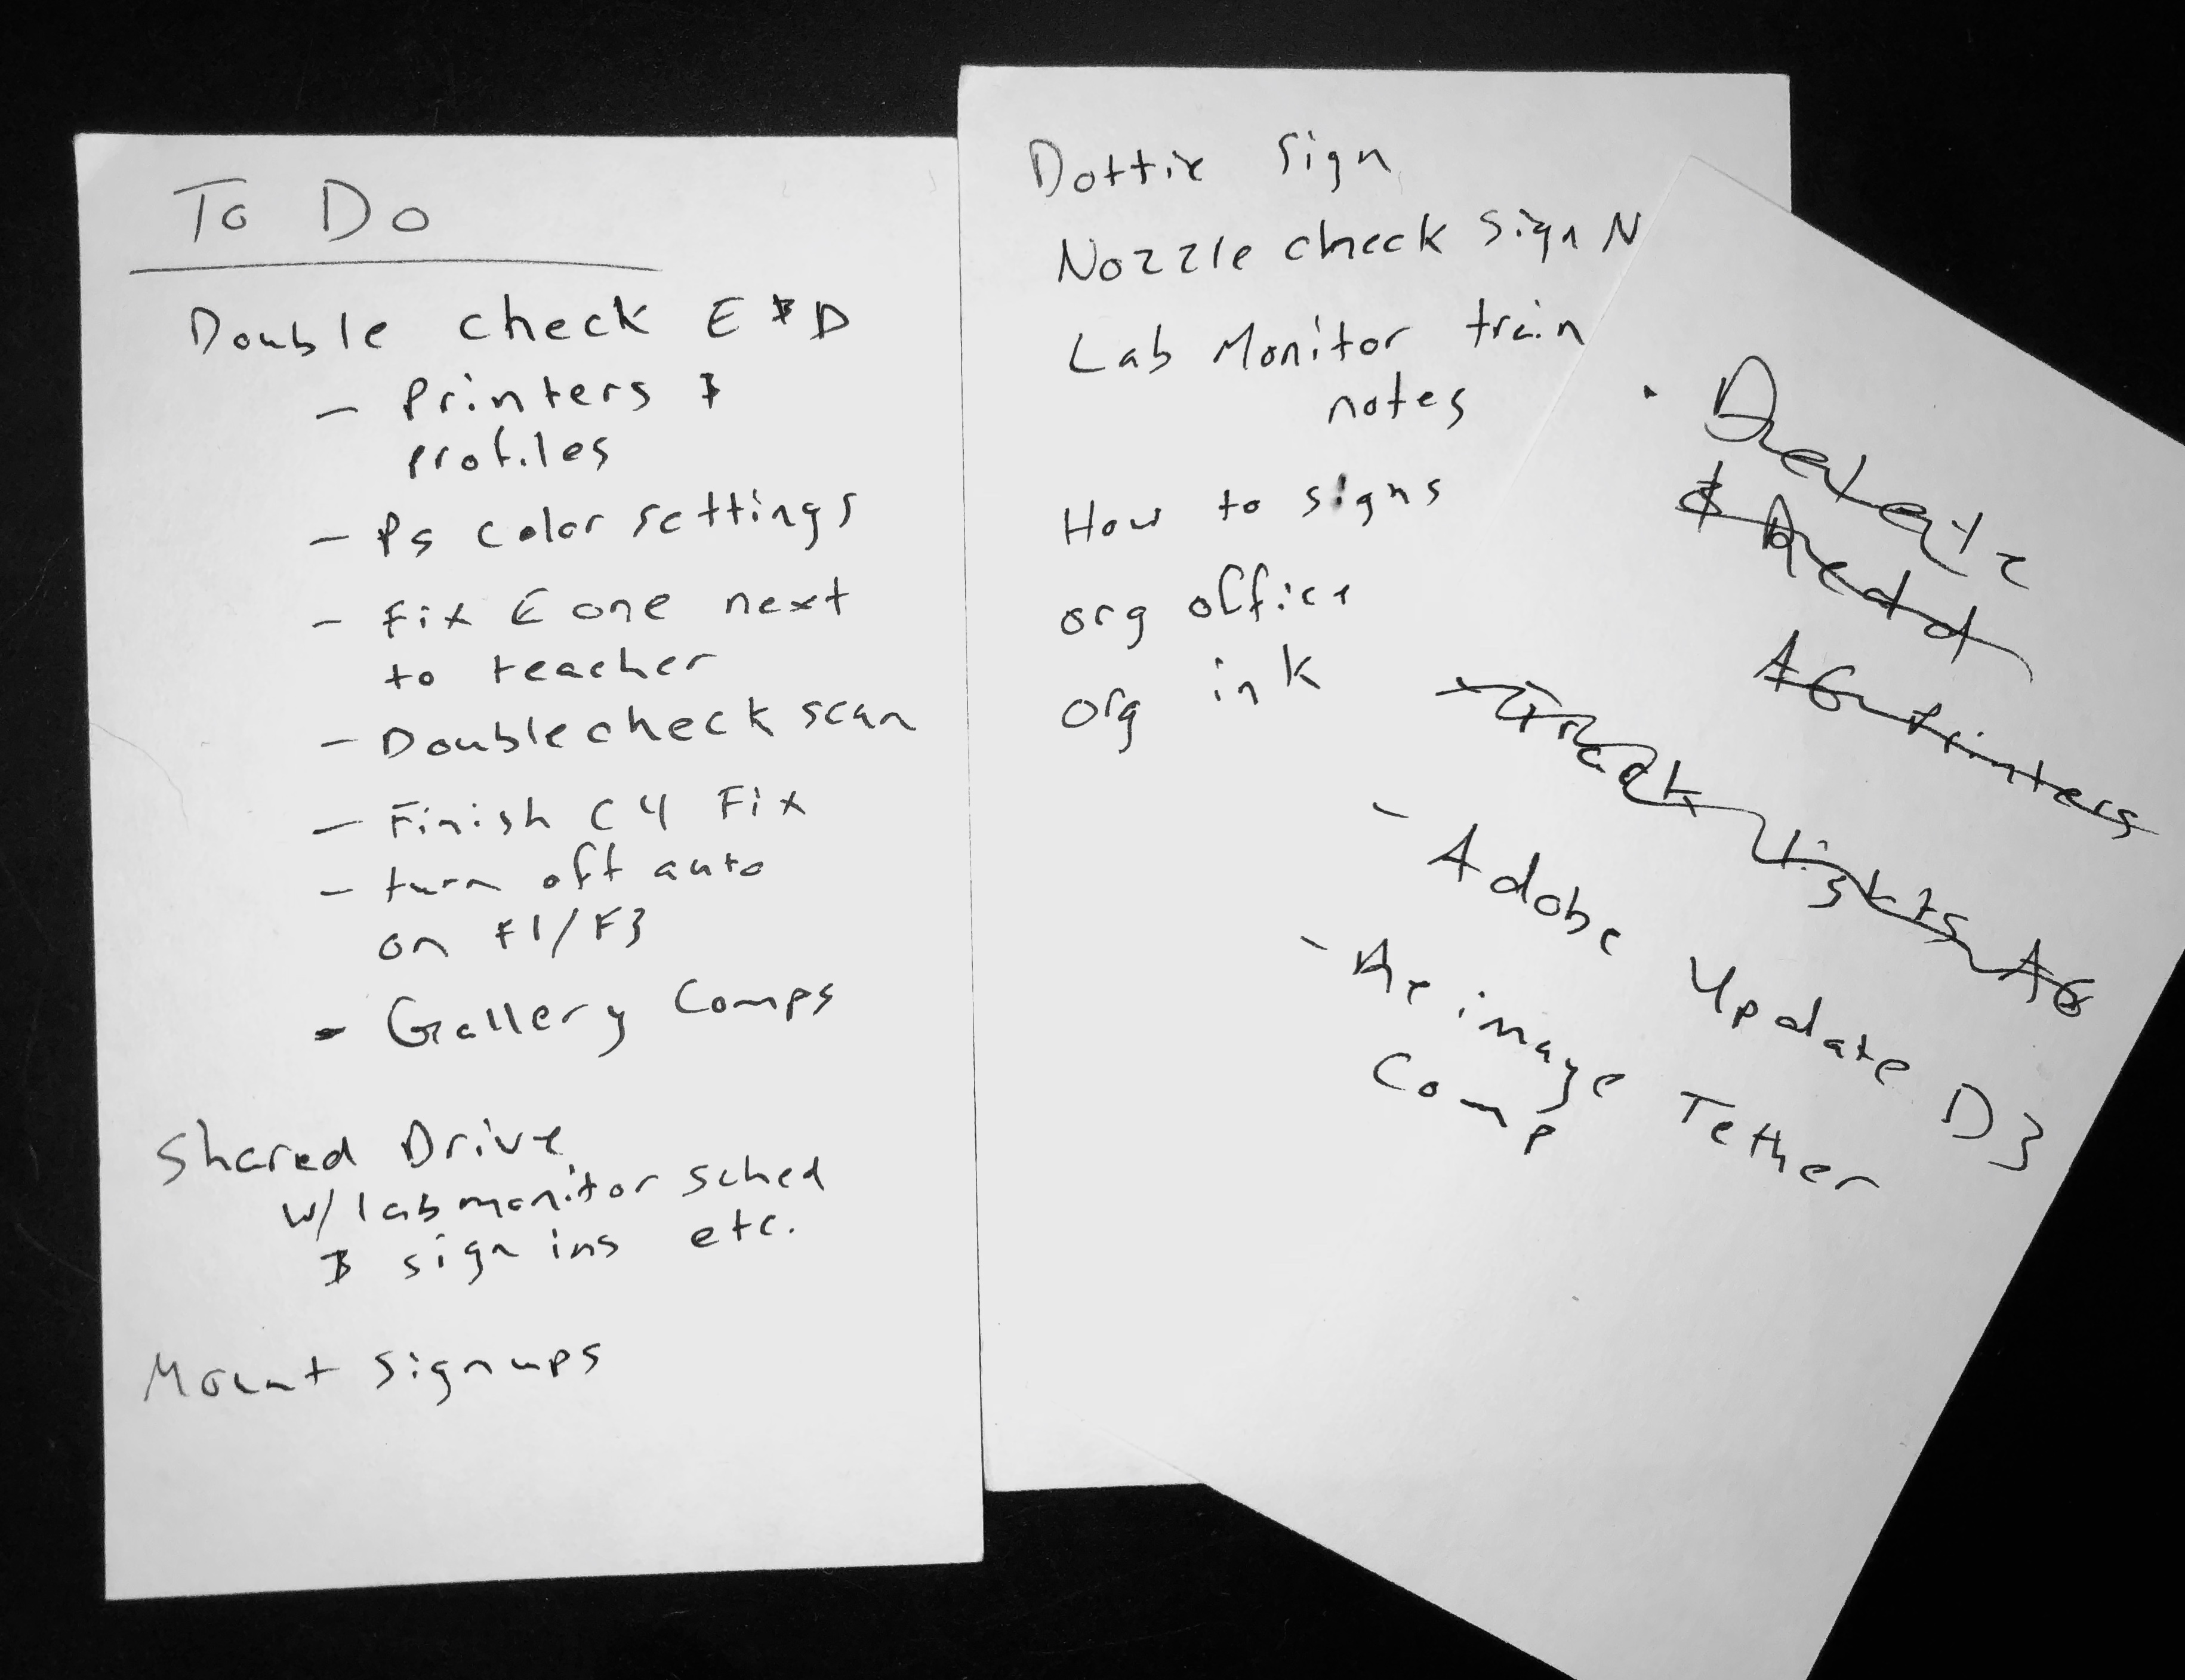 To Do
Double check E & D
- Printers &
profiles
- Ps color settings
- Fix E one next
to teacher
- Double check scan
- Finish C4 Fix
- turn off auto
on F1/F3
- Gallery Comps
Shared Drive
w/ lab monitor sched
& sign ins etc.
Mount signups
Dottie Sign
Nozzle check sign N
Lab Monitor train
notes
How to signs
org office
org ink
& Readd
AG Printers
- Track lists AG
- Adobe Update D3
- Re image Tether
Comp